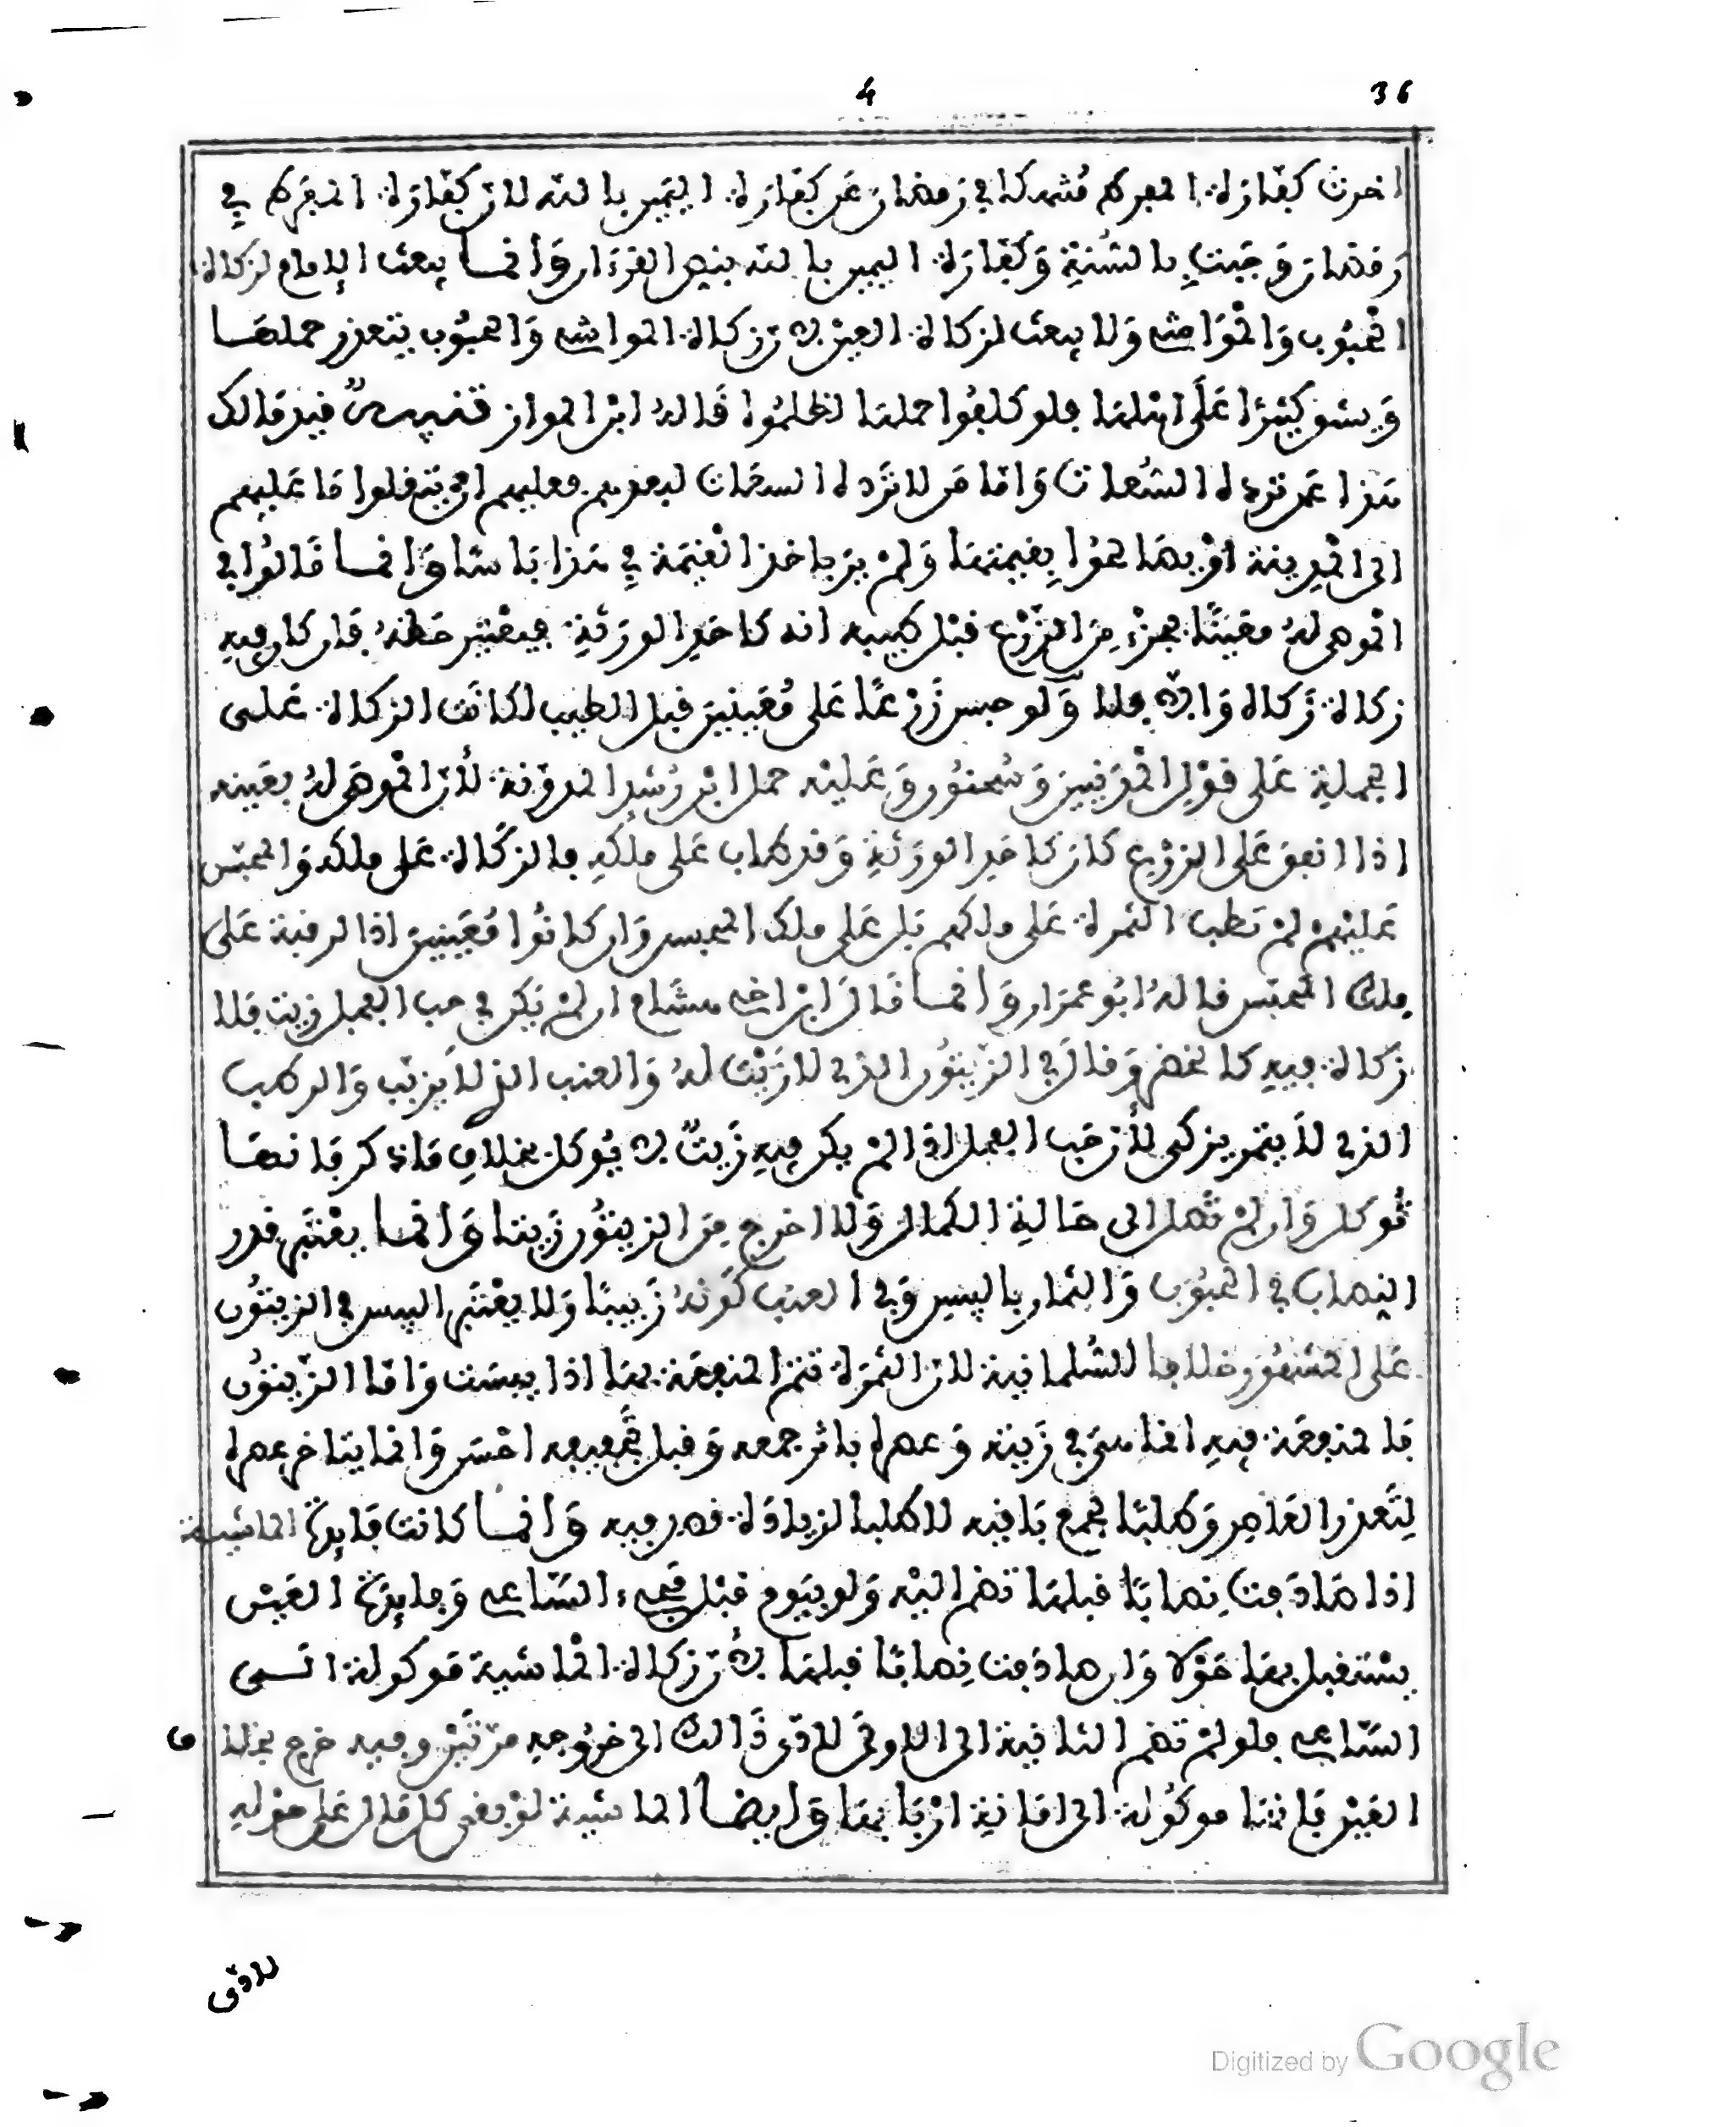 36 4
اخرت كفارة المفرط مُدّه في رمضان عن كفارة اليمين بالله لان كفارة المفرط في
رمضان وجبت بالسُّنّة وكفارة اليمين بالله بنص القرءان وانما يبعث الإمام لزكاة
الحبوب والمواشي ولا يبعث لزكاة العين لان زكاة المواشي والحبوب يتعذر حملها
ويشق كثيرا على اهلها فلو كلفوا حملها لظلموا قاله ابن المواز تنبيه فيد مالك
هذا بمن تمر به السعاة واما من لا تمر به السعاة لبعدهم فعليهم ان ينقلوا ما عليهم
الى المدينة او يصالحوا بقيمتها ولم ير باخذ القيمة في هذا باسا وانما قالوا في
الموصى له معينا بجزء من الزرع قبل طيبه انه كاحد الورثة فيعتبر حظه فان كان فيه
زكاة زكاه والا فلا ولو حبس زرعا على معينين قبل الطيب لكانت الزكاة على
الجملة على قول المدنيين وسحنون وعليه حمل ابن رشد المدونة لأن الموصى له بعينه
اذا انفق على الزرع كان كاحد الورثة وقد طاب على ملكه فالزكاة على ملكه والمحبس
عليهم لم تطب الثمرة على ملكهم بل على ملك المحبس وان كانوا معينين اذ الرقبة على
ملك المحبس قاله ابو عمران وانما قال ابن اخي هشام ان لم يكن في حب الفجل زيت فلا
زكاة فيه كالخضر وقال في الزيتون الذي لا زيت له والعنب الذي لا يزبب والرطب
الذي لا يتمر يزكى لأن حب الفجل اذا لم يكن فيه زيت لا يوكل بخلاف ما ذكر فانها
توكل وان لم تصل الى حالة الكمال ولا اخرج من الزيتون زيتا وانما يعتبر قدر
النصاب في الحبوب والثمار باليبس وفي العنب كونه زبيبا ولا يعتبر اليبس في الزيتون
على المشهور خلافا للسلمانية لان الثمرة تتم المنفعة بها اذا يبست واما الزيتون
فالمنفعة فيه انما هي في زيته وعصره باثر جمعه وقبل تجفيفه احسن وانما يتاخر عصره
لتعذر المعاصر وطلبا لجمع باقيه لا طلبا لزيادة قصد فيه وانما كانت فايدة الماشية
اذا صادفت نصابا قبلها تضم اليه ولو بيوم قبل مجيء الساعي وفايدة العين
يستقبل بها حولا وان صادفت نصابا قبلها لأن زكاة الماشية موكولة الى
الساعي فلو لم تضم الثانية الى الاولى لادى ذالك الى خروجه مرتين وفيه حرج بخلاف
العين فانها موكولة الى امانة اربابها وايضا الماشية لو بقي كل مال على حوله
لادى
Digitized by Google